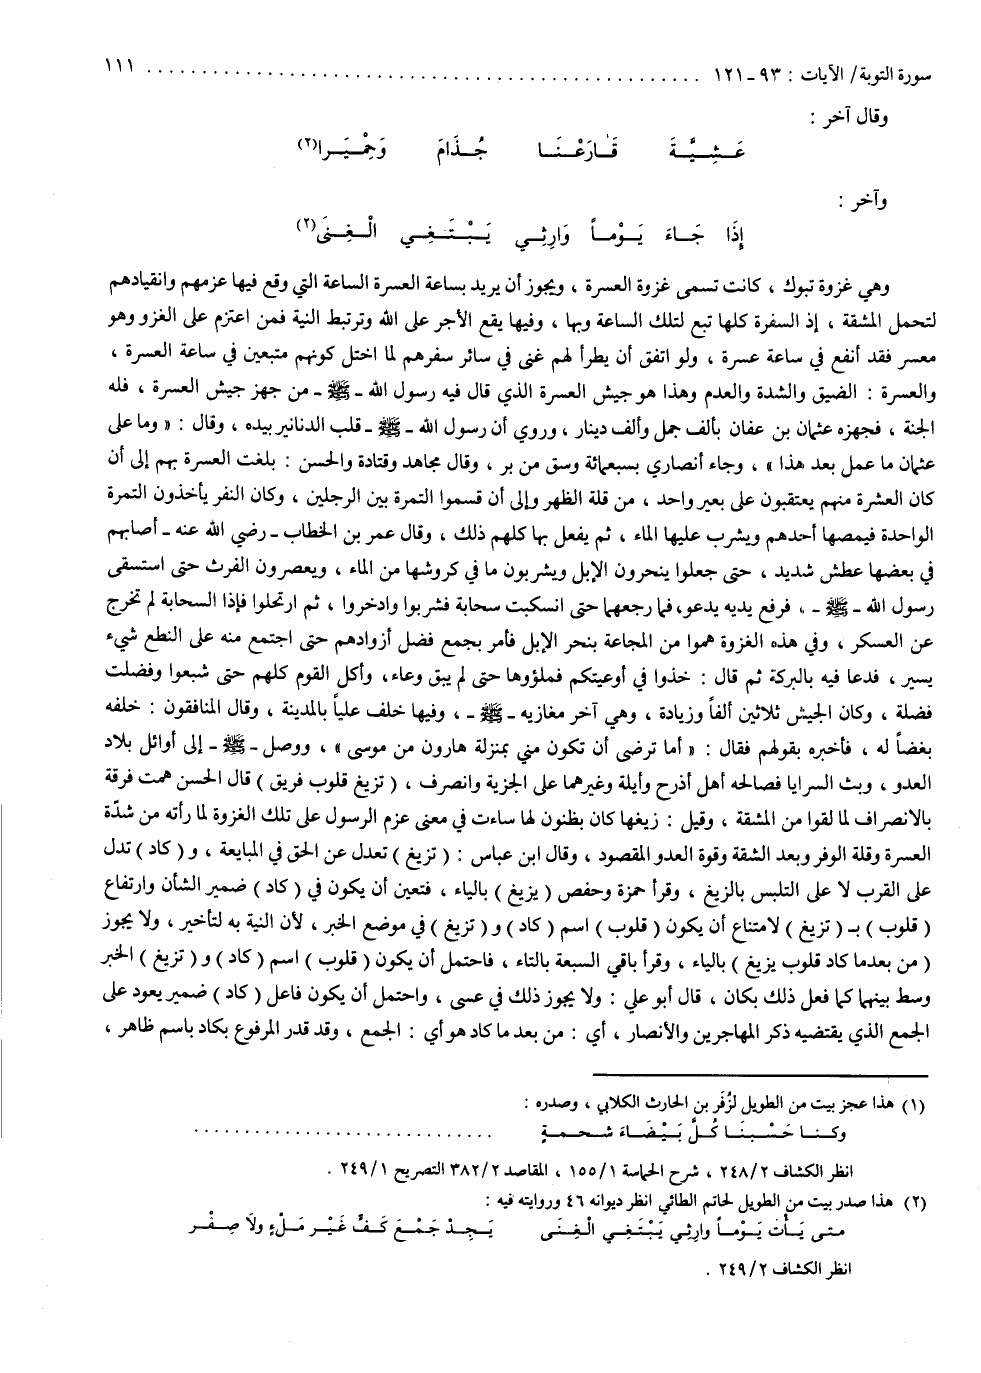 سورة التوبة/ الآيات : ٩٣ ـ ١٢١ ................................................ ١١١
وقال آخر :
عَـشِـيَّـةَ قَـارَعْـنَـا جُـذَامَ وَحِمْـيَـرا(٢)
وآخر :
إِذَا جَـاءَ يَـوْمـاً وَارِثِـي يَـبْـتَـغِـي الْـغِـنَى(٢)
وهي غزوة تبوك ، كانت تسمى غزوة العسرة ، ويجوز أن يريد بساعة العسرة الساعة التي وقع فيها عزمهم وانقيادهم
لتحمل المشقة ، إذ السفرة كلها تبع لتلك الساعة وبها ، وفيها يقع الأجر على الله وترتبط النية فمن اعتزم على الغزو وهو
معسر فقد أنفع في ساعة عسرة ، ولو اتفق أن يطرأ لهم غنى في سائر سفرهم لما اختل كونهم متبعين في ساعة العسرة ،
والعسرة : الضيق والشدة والعدم وهذا هو جيش العسرة الذي قال فيه رسول الله ـ ﷺ ـ من جهز جيش العسرة ، فله
الجنة ، فجهزه عثمان بن عفان بألف جمل وألف دينار ، وروي أن رسول الله ـ ﷺ ـ قلب الدنانير بيده ، وقال : « وما على
عثمان ما عمل بعد هذا » ، وجاء أنصاري بسبعمائة وسق من بر ، وقال مجاهد وقتادة والحسن : بلغت العسرة بهم إلى أن
كان العشرة منهم يعتقبون على بعير واحد ، من قلة الظهر وإلى أن قسموا التمرة بين الرجلين ، وكان النفر يأخذون التمرة
الواحدة فيمصها أحدهم ويشرب عليها الماء ، ثم يفعل بها كلهم ذلك ، وقال عمر بن الخطاب ـ رضي الله عنه ـ أصابهم
في بعضها عطش شديد ، حتى جعلوا ينحرون الإبل ويشربون ما في كروشها من الماء ، ويعصرون الفرث حتى استسقى
رسول الله ـ ﷺ ـ ، فرفع يديه يدعو، فما رجعهما حتى انسكبت سحابة فشربوا وادخروا ، ثم ارتحلوا فإذا السحابة لم تخرج
عن العسكر ، وفي هذه الغزوة هموا من المجاعة بنحر الإبل فأمر بجمع فضل أزوادهم حتى اجتمع منه على النطع شيء
يسير ، فدعا فيه بالبركة ثم قال : خذوا في أوعيتكم فملؤوها حتى لم يبق وعاء، وأكل القوم كلهم حتى شبعوا وفضلت
فضلة ، وكان الجيش ثلاثين ألفاً وزيادة ، وهي آخر مغازيه ـ ﷺ ـ ، وفيها خلف علياً بالمدينة ، وقال المنافقون : خلفه
بغضاً له ، فأخبره بقولهم فقال : « أما ترضى أن تكون مني بمنزلة هارون من موسى » ، ووصل ـ ﷺ ـ إلى أوائل بلاد
العدو ، وبث السرايا فصالحه أهل أذرح وأيلة وغيرهما على الجزية وانصرف ، ( تزيغ قلوب فريق ) قال الحسن همت فرقة
بالانصراف لما لقوا من المشقة ، وقيل : زيغها كان بظنون لها ساءت في معنى عزم الرسول على تلك الغزوة لما رأته من شدّة
العسرة وقلة الوفر وبعد الشقة وقوة العدو المقصود ، وقال ابن عباس : ( تزيغ ) تعدل عن الحق في المبايعة ، و ( كاد ) تدل
على القرب لا على التلبس بالزيغ ، وقرأ حمزة وحفص ( يزيغ ) بالياء ، فتعين أن يكون في ( كاد ) ضمير الشأن وارتفاع
( قلوب ) بـ ( تزيغ ) لامتناع أن يكون ( قلوب ) اسم ( كاد ) و ( تزيغ ) في موضع الخبر ، لأن النية به لتأخير ، ولا يجوز
( من بعدما كاد قلوب يزيغ ) بالياء ، وقرأ باقي السبعة بالتاء ، فاحتمل أن يكون ( قلوب ) اسم ( كاد ) و ( تزيغ ) الخبر
وسط بينهما كما فعل ذلك بكان ، قال أبو علي : ولا يجوز ذلك في عسى ، واحتمل أن يكون فاعل ( كاد ) ضمير يعود على
الجمع الذي يقتضيه ذكر المهاجرين والأنصار ، أي : من بعد ما كاد هو أي : الجمع ، وقد قدر المرفوع بكاد باسم ظاهر ،
(١) هذا عجز بيت من الطويل لزُفَر بن الحارث الكلابي ، وصدره :
وكـنـا حَـسْـبـنَـا كُـلَّ بَـيْـضَـاءَ شـحـمـةٍ ............................
انظر الكشاف ٢٤٨/٢ ، شرح الحماسة ١٥٥/١ ، المقاصد ٣٨٢/٢ التصريح ٢٤٩/١ .
(٢) هذا صدر بيت من الطويل لحاتم الطائي انظر ديوانه ٤٦ وروايته فيه :
مـتـى يَـأت يَـوْمـاً وارِثِـي يَـبْـتَـغِـي الْـغِـنَى يَـجِـدْ جَـمْـعَ كَـفٍّ غَـيْـر مَـلْءٍ ولَا صِـفْـر
انظر الكشاف ٢٤٩/٢ .